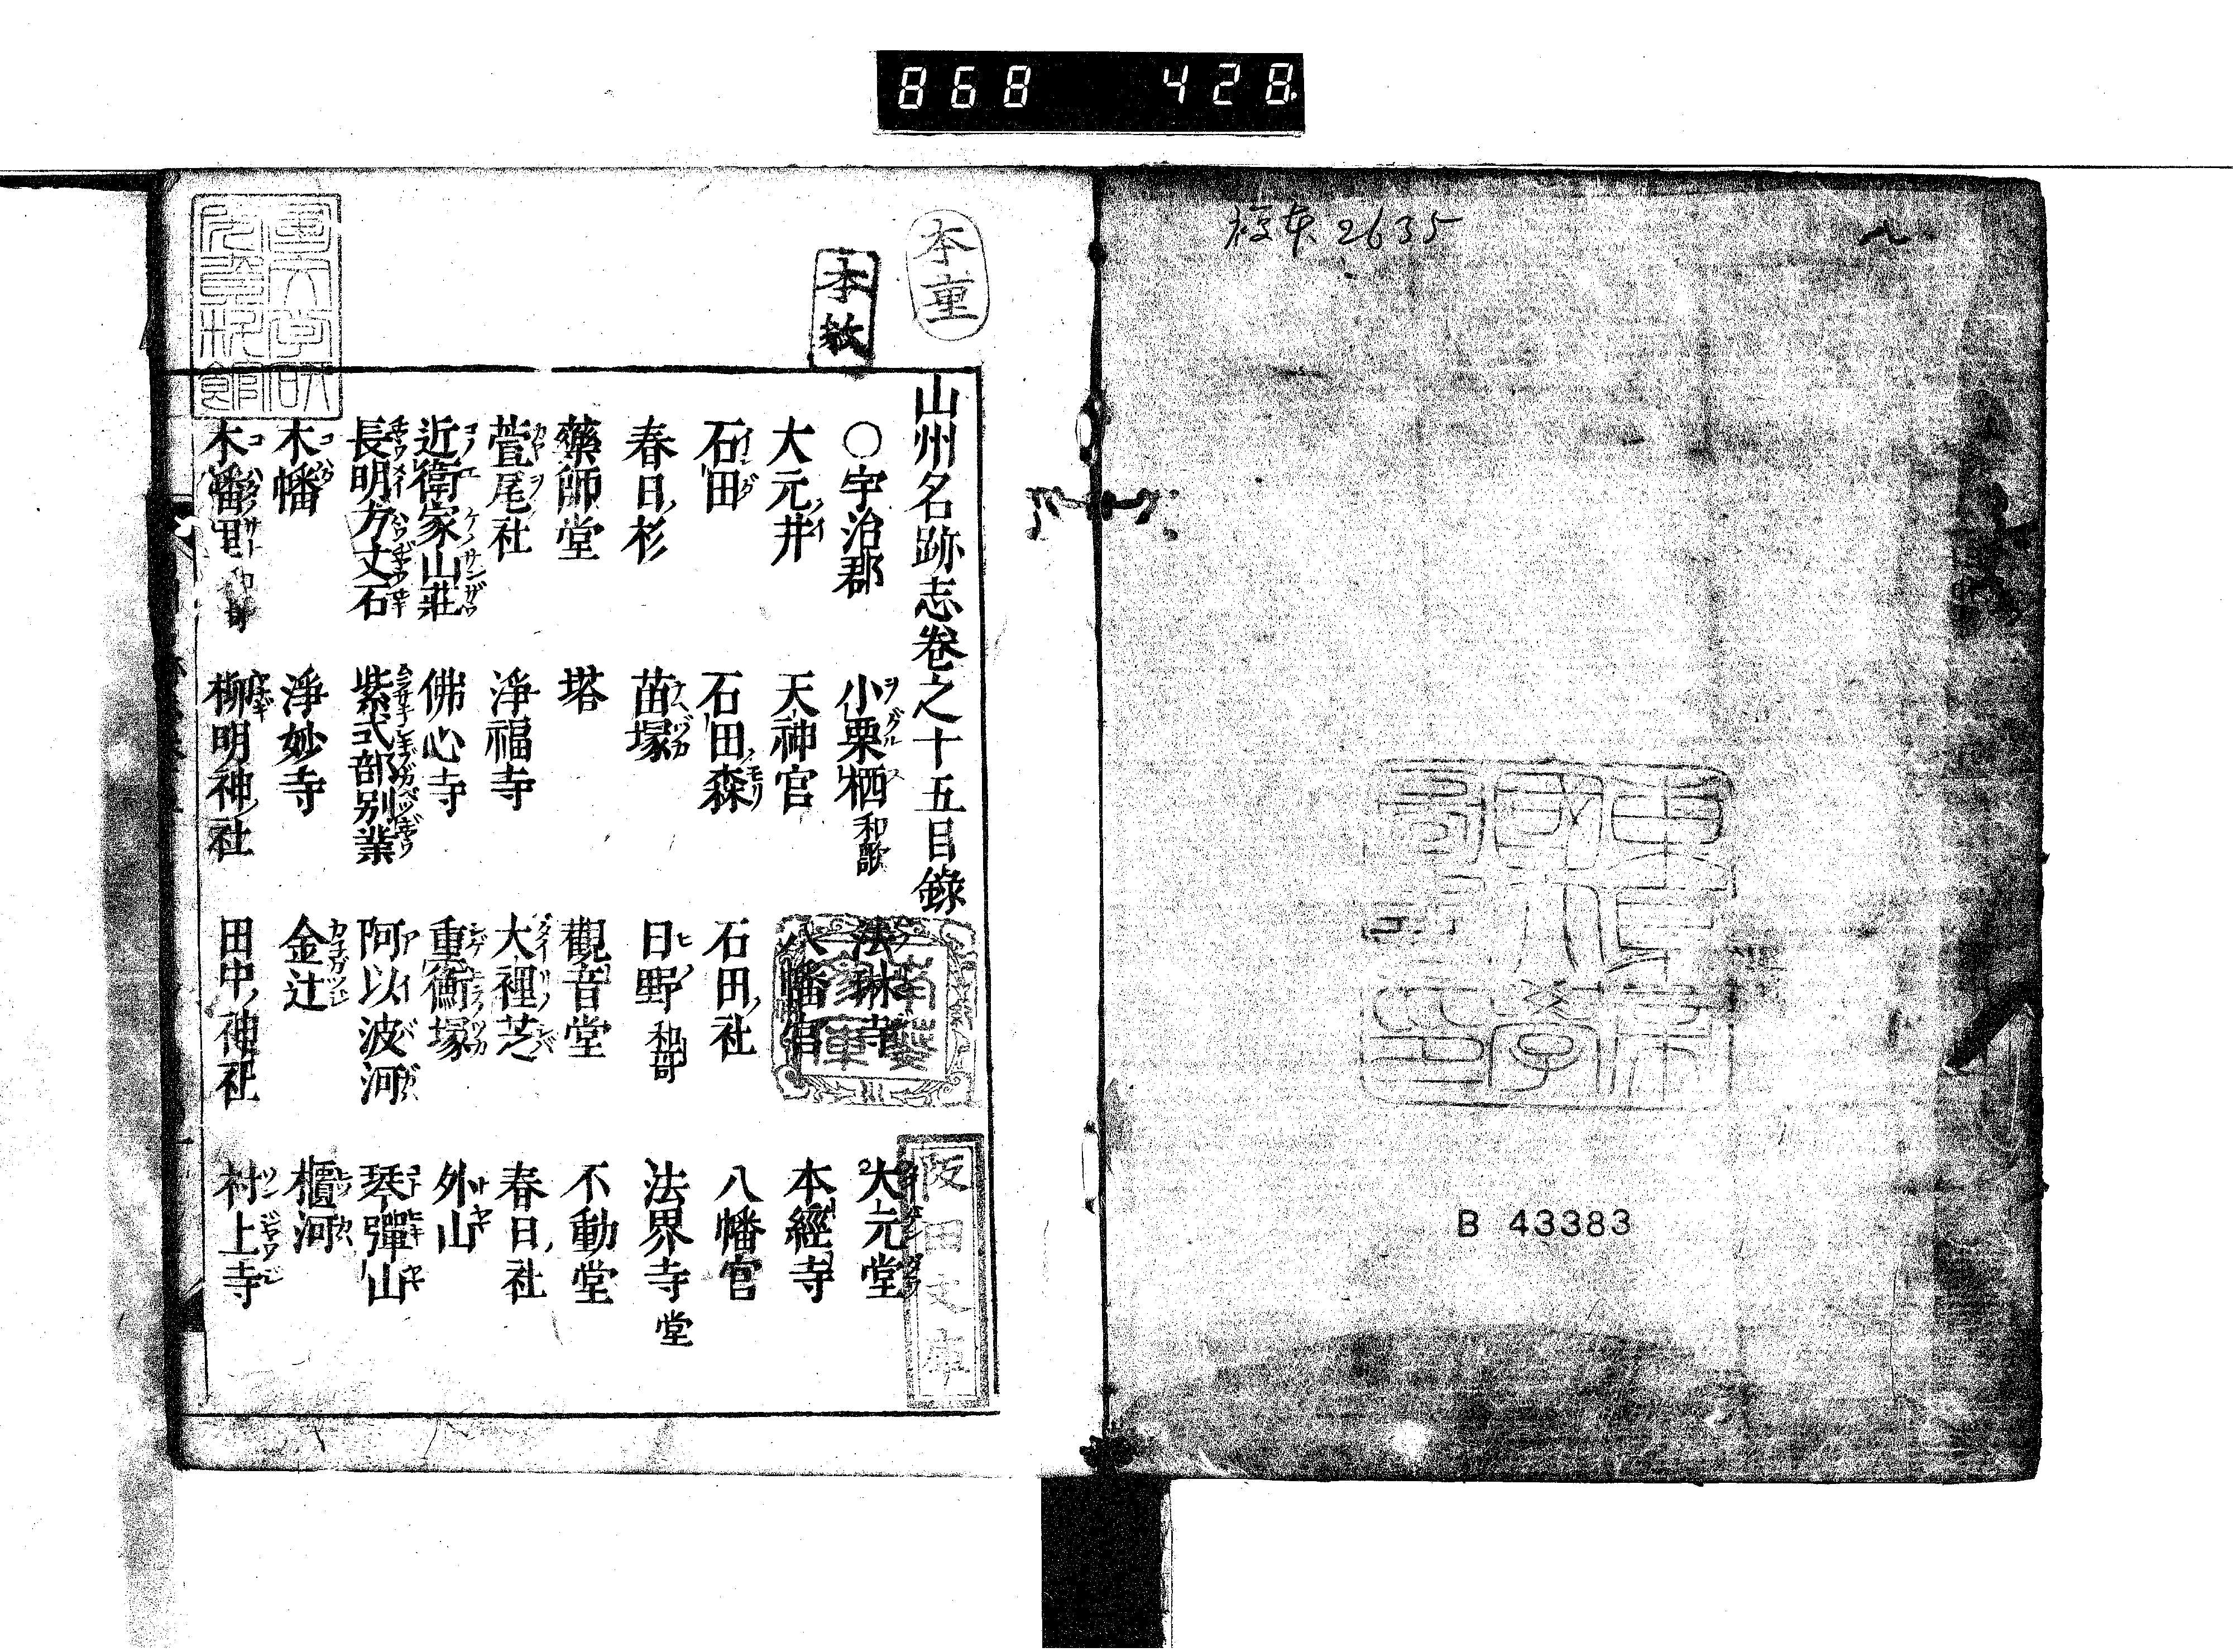 868 428
複本 2635
B 43383
本重
本教
山州名跡志卷之十五目錄
○宇治郡 小栗栖和歌 法琳寺 大元堂
大元井 天神宮 八幡宮 本經寺
石田 石田森 石田ノ社 八幡宮
春日ノ杉 苗塚 日野和哥 法界寺堂
藥師堂 塔 觀音堂 不動堂
萱尾社 淨福寺 大裡芝 春日ノ社
近衛家山莊 佛心寺 重衡塚 外山
長明方丈石 紫式部別業 阿以波河 琴彈山
木幡 淨妙寺 金辻 櫃河
木幡里 柳明神ノ社 田中ノ神社 村上寺
阪田文庫